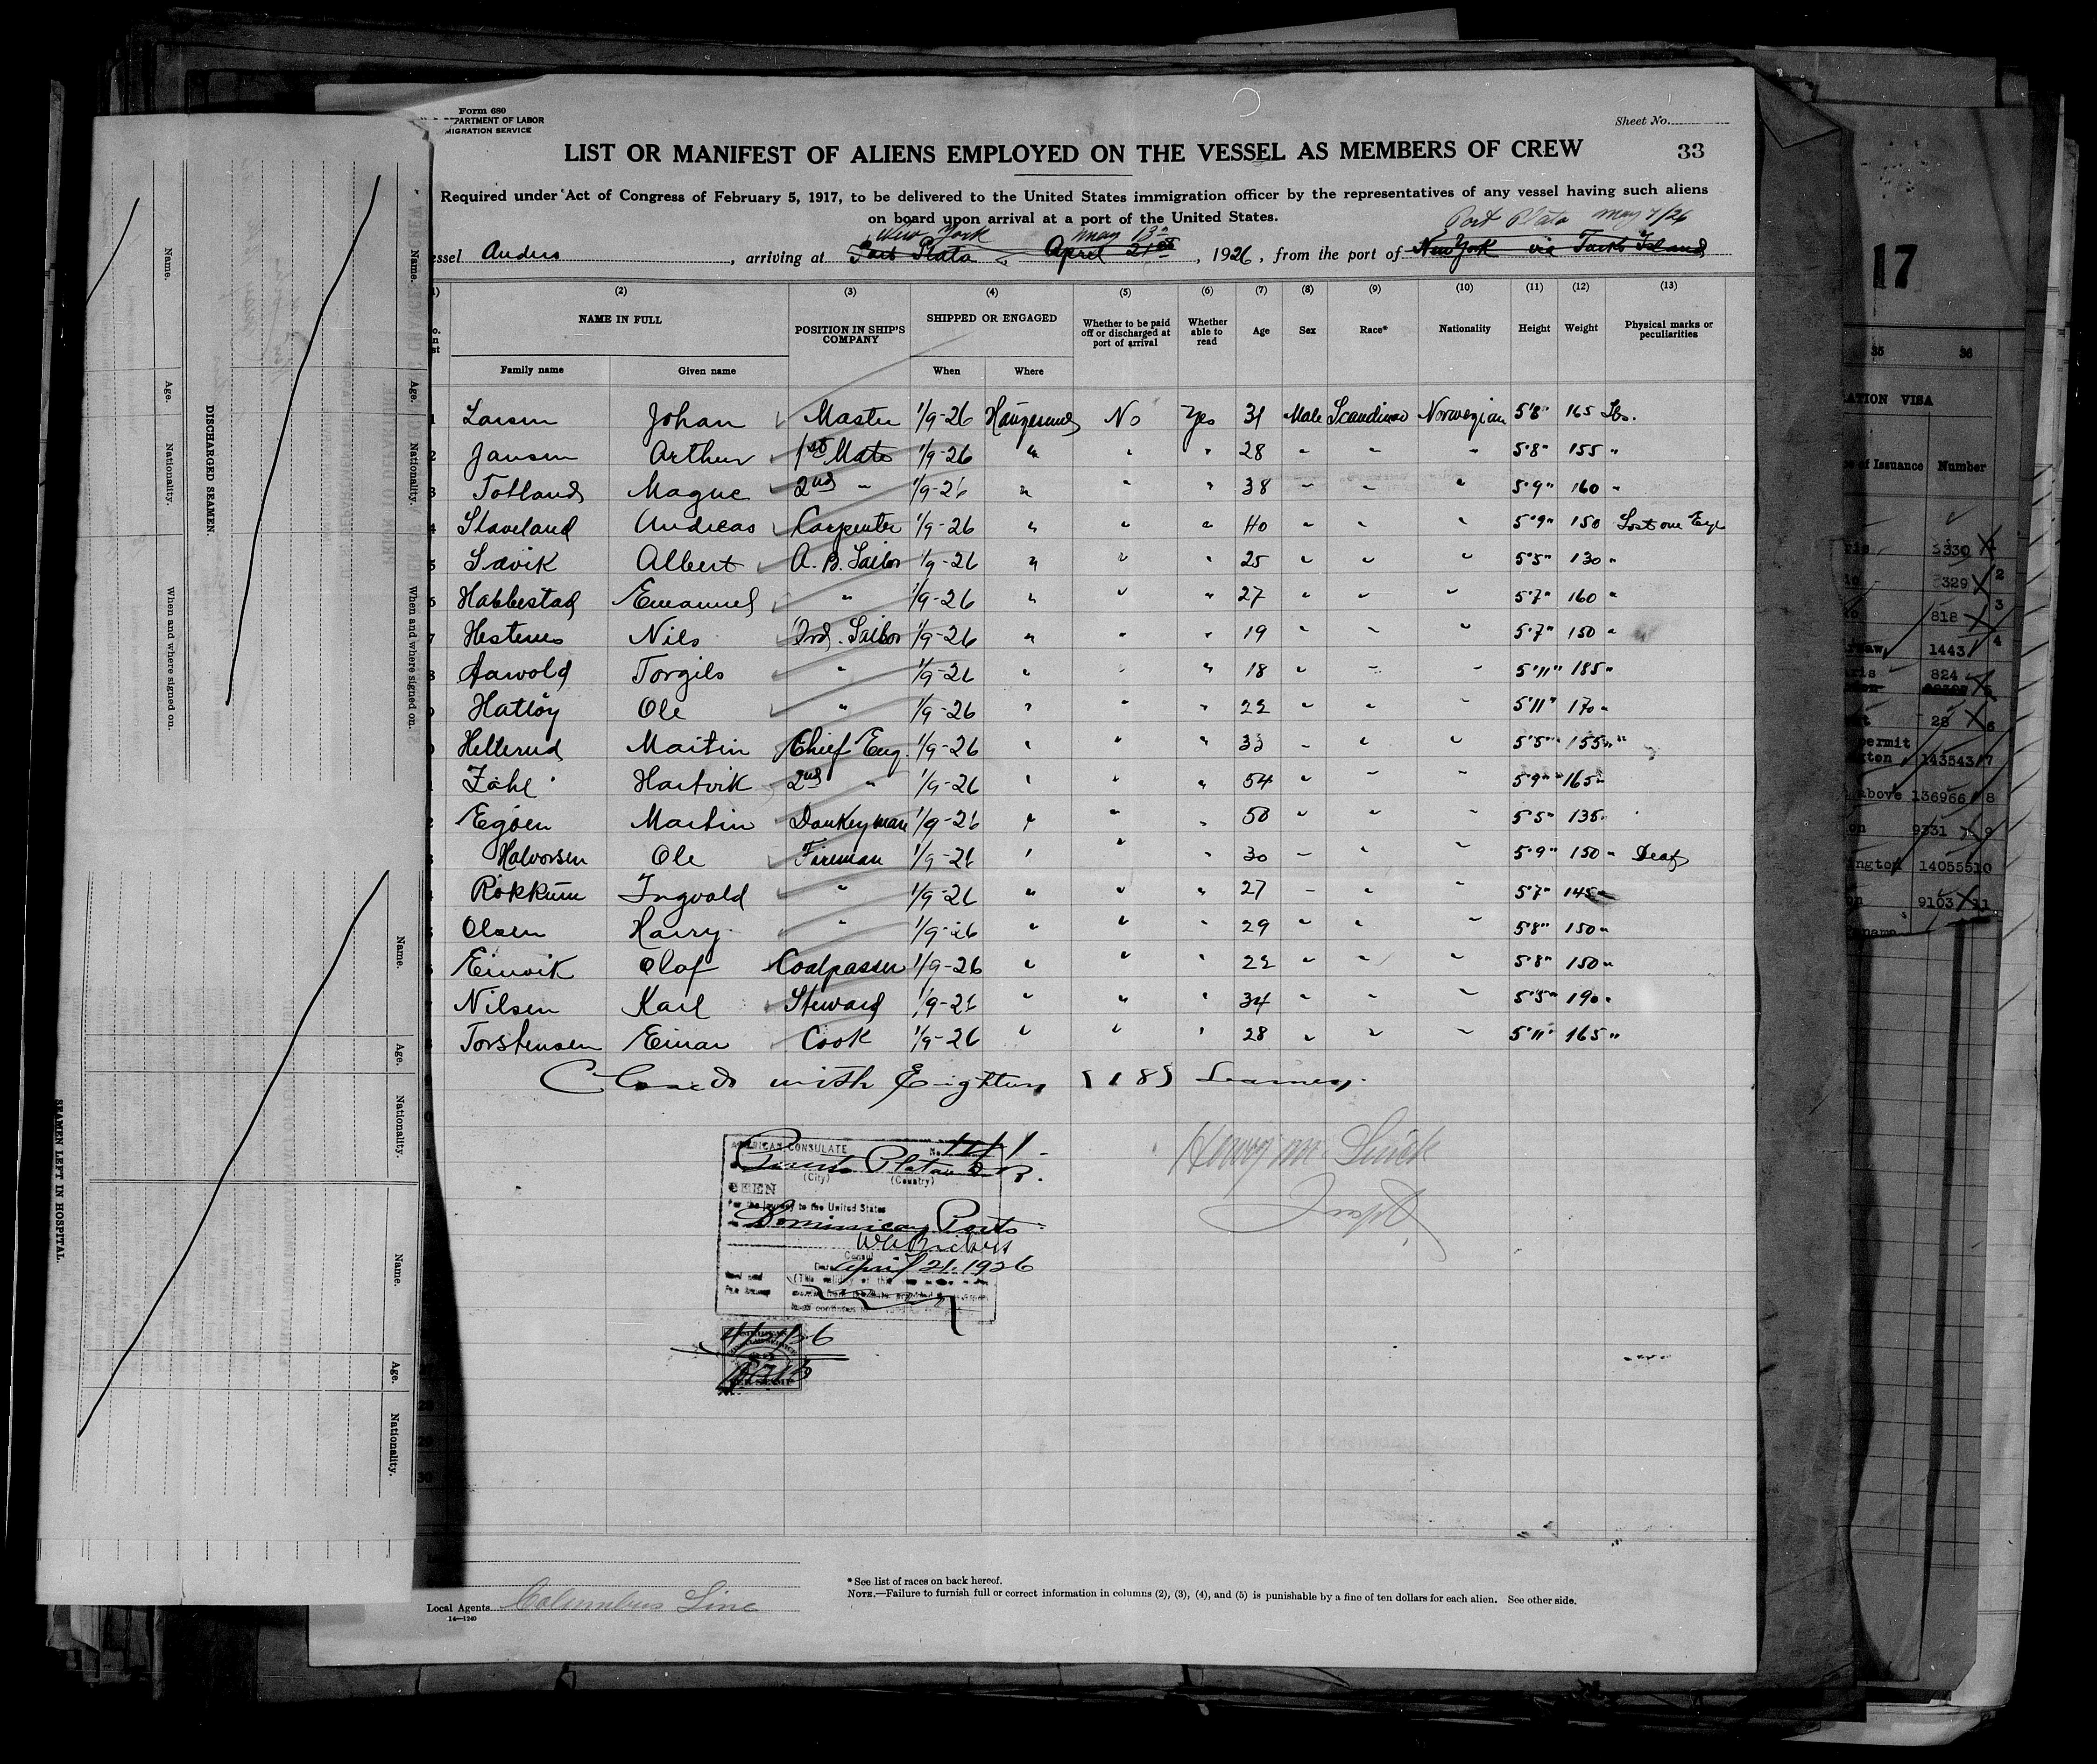 Form 680
PARTMENT OF LABOR
MIGRATION SERVICE
Sheet No.
LIST OR MANIFEST OF ALIENS EMPLOYED ON THE VESSEL AS MEMBERS OF CREW
33
Required under Act of Congress of February 5, 1917, to be delivered to the United States immigration officer by the representatives of any vessel having such aliens
on board upon arrival at a port of the United States.
New York May 13 Port Plata May 7/26
essel Anders, arriving at Port Plata, April 21st, 1926, from the port of New York via Turks Island
(2) (3) (4) (5) (6) (7) (8) (9) (10) (11) (12) (13)
NAME IN FULL
Family name Given name
POSITION IN SHIP'S COMPANY
SHIPPED OR ENGAGED
When Where
Whether to be paid off or discharged at port of arrival
Whether able to read
Age Sex Race* Nationality Height Weight Physical marks or peculiarities
Larsen Johan Master 1/9-26 Haugesund No Yes 31 Male Scandinav Norwegian 5'8" 165 Lbs.
2 Jansen Arthur 1st Mate 1/9-26 " " " 28 " " " 5'8" 155 "
Totland Magne 2nd " 1/9-26 " " " 38 " " " 5'9" 160 "
Staveland Andreas Carpenter 1/9-26 " " " 40 " " " 5'9" 150 Lost one Eye
Sævik Albert A. B. Sailor 1/9-26 " " " 25 " " " 5'5" 130 "
Habbestad Emanuel " 1/9-26 " " " 27 " " " 5'7" 160 "
Nils Ord. Sailor 1/9-26 " " " 19 " " " 5'7" 150 "
Aarvold Torgils " 1/9-26 " " " 18 " " " 5'11" 185 "
Hatløy Ole " 1/9-26 " " " 22 " " " 5'11" 170 "
Hellerud Martin Chief Eng. 1/9-26 " " " 33 " " " 5'5" 155 "
Hartvik 2nd " 1/9-26 " " " 54 " " " 5'9" 165 "
Egöen Martin Donkeyman 1/9-26 " " " 50 " " " 5'5" 135 "
Halvorsen Ole Fireman 1/9-26 " " " 30 " " " 5'9" 150 " Deaf
Rökkum Ingvald " 1/9-26 " " " 27 " " " 5'7" 145 "
Olsen Harry " 1/9-26 " " " 29 " " " 5'8" 150 "
Einvik Olaf Coalpasser 1/9-26 " " " 22 " " " 5'8" 150 "
Nilsen Karl Steward 1/9-26 " " " 34 " " " 5'5" 190 "
Torstensen Einar Cook 1/9-26 " " " 28 " " " 5'11" 165 "
Closed with Eighteen (18) Seamen.
AMERICAN CONSULATE No.
Puerto Plata D R.
(City) (Country)
SEEN
For the journey to the United States
Dominican Ports
Consul
Date April 21, 1926
Insp.
29
30
* See list of races on back hereof.
NOTE.—Failure to furnish full or correct information in columns (2), (3), (4), and (5) is punishable by a fine of ten dollars for each alien. See other side.
Local Agents Columbus Line
14—1240
DISCHARGED SEAMEN.
Name. Age. Nationality. When and where signed on.
Name. Age. Nationality. When and where signed on.
SEAMEN LEFT IN HOSPITAL.
Name. Age. Nationality.
Name. Age. Nationality.
17
35 36
ATION VISA
of Issuance Number
330
329 2
818 3
1443 4
824
28 6
permit
143543 7
above 136966 8
9331 9
ington 140555 10
9103 11